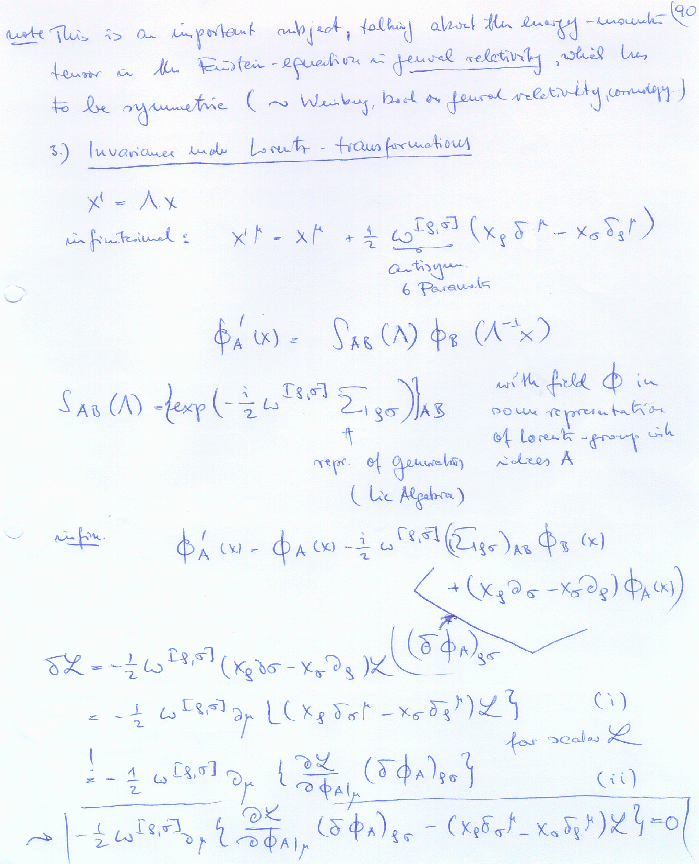 (90
note This is an important subject, talking about the energy-momentum
tensor in the Einstein-equation in general relativity, which has
to be symmetric (~> Weinberg, book on general relativity, cosmology)
3.) Invariance under Lorentz-transformations
x' = Λ x
infinitesimal: x'^μ = x^μ + 1/2 ω^[ρ,σ] (x_ρ δ_σ^μ − x_σ δ_ρ^μ)
antisym.
6 Parameter
ϕ'_A (x) = S_AB (Λ) ϕ_B (Λ^-1 x)
S_AB (Λ) = {exp(−i/2 ω^[ρ,σ] Σ_ρσ)}_AB
with field ϕ in
some representation
of Lorentz-group with
indices A
↑
repr. of generators
(Lie Algebra)
infin. ϕ'_A (x) = ϕ_A (x) − i/2 ω^[ρ,σ] (Σ_ρσ)_AB ϕ_B (x)
+ (x_ρ ∂_σ − x_σ ∂_ρ) ϕ_A (x)
(δϕ_A)_ρσ
δℒ = −1/2 ω^[ρ,σ] (x_ρ ∂_σ − x_σ ∂_ρ) ℒ
= −1/2 ω^[ρ,σ] ∂_μ {(x_ρ δ_σ^μ − x_σ δ_ρ^μ) ℒ} (i)
for scalar ℒ
!= −1/2 ω^[ρ,σ] ∂_μ {∂ℒ/∂ϕ_A|μ (δϕ_A)_ρσ} (ii)
~> −1/2 ω^[ρ,σ] ∂_μ {∂ℒ/∂ϕ_A|μ (δϕ_A)_ρσ − (x_ρ δ_σ^μ − x_σ δ_ρ^μ) ℒ} = 0